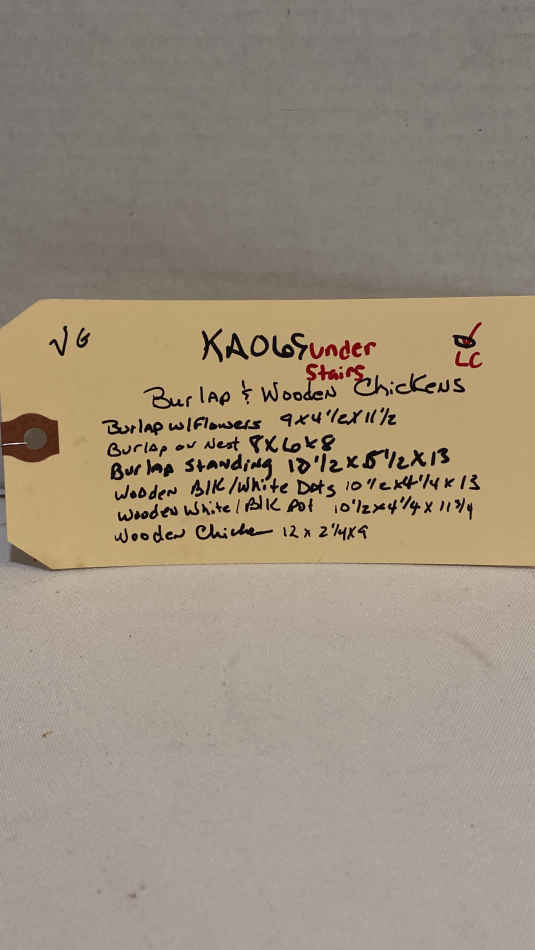 VG
KAO65 under
Stairs
LC
Burlap & Wooden Chickens
Burlap w/Flowers 9x4 1/2x11 1/2
Burlap on Nest 8x6x8
Burlap Standing 10 1/2 x 5 1/2 x 13
Wooden Blk/White Dots 10 1/2 x4 1/4 x 13
Wooden White/Blk Dot 10 1/2x4 1/4 x 11 3/4
Wooden Chicken 12 x 2 1/4x9